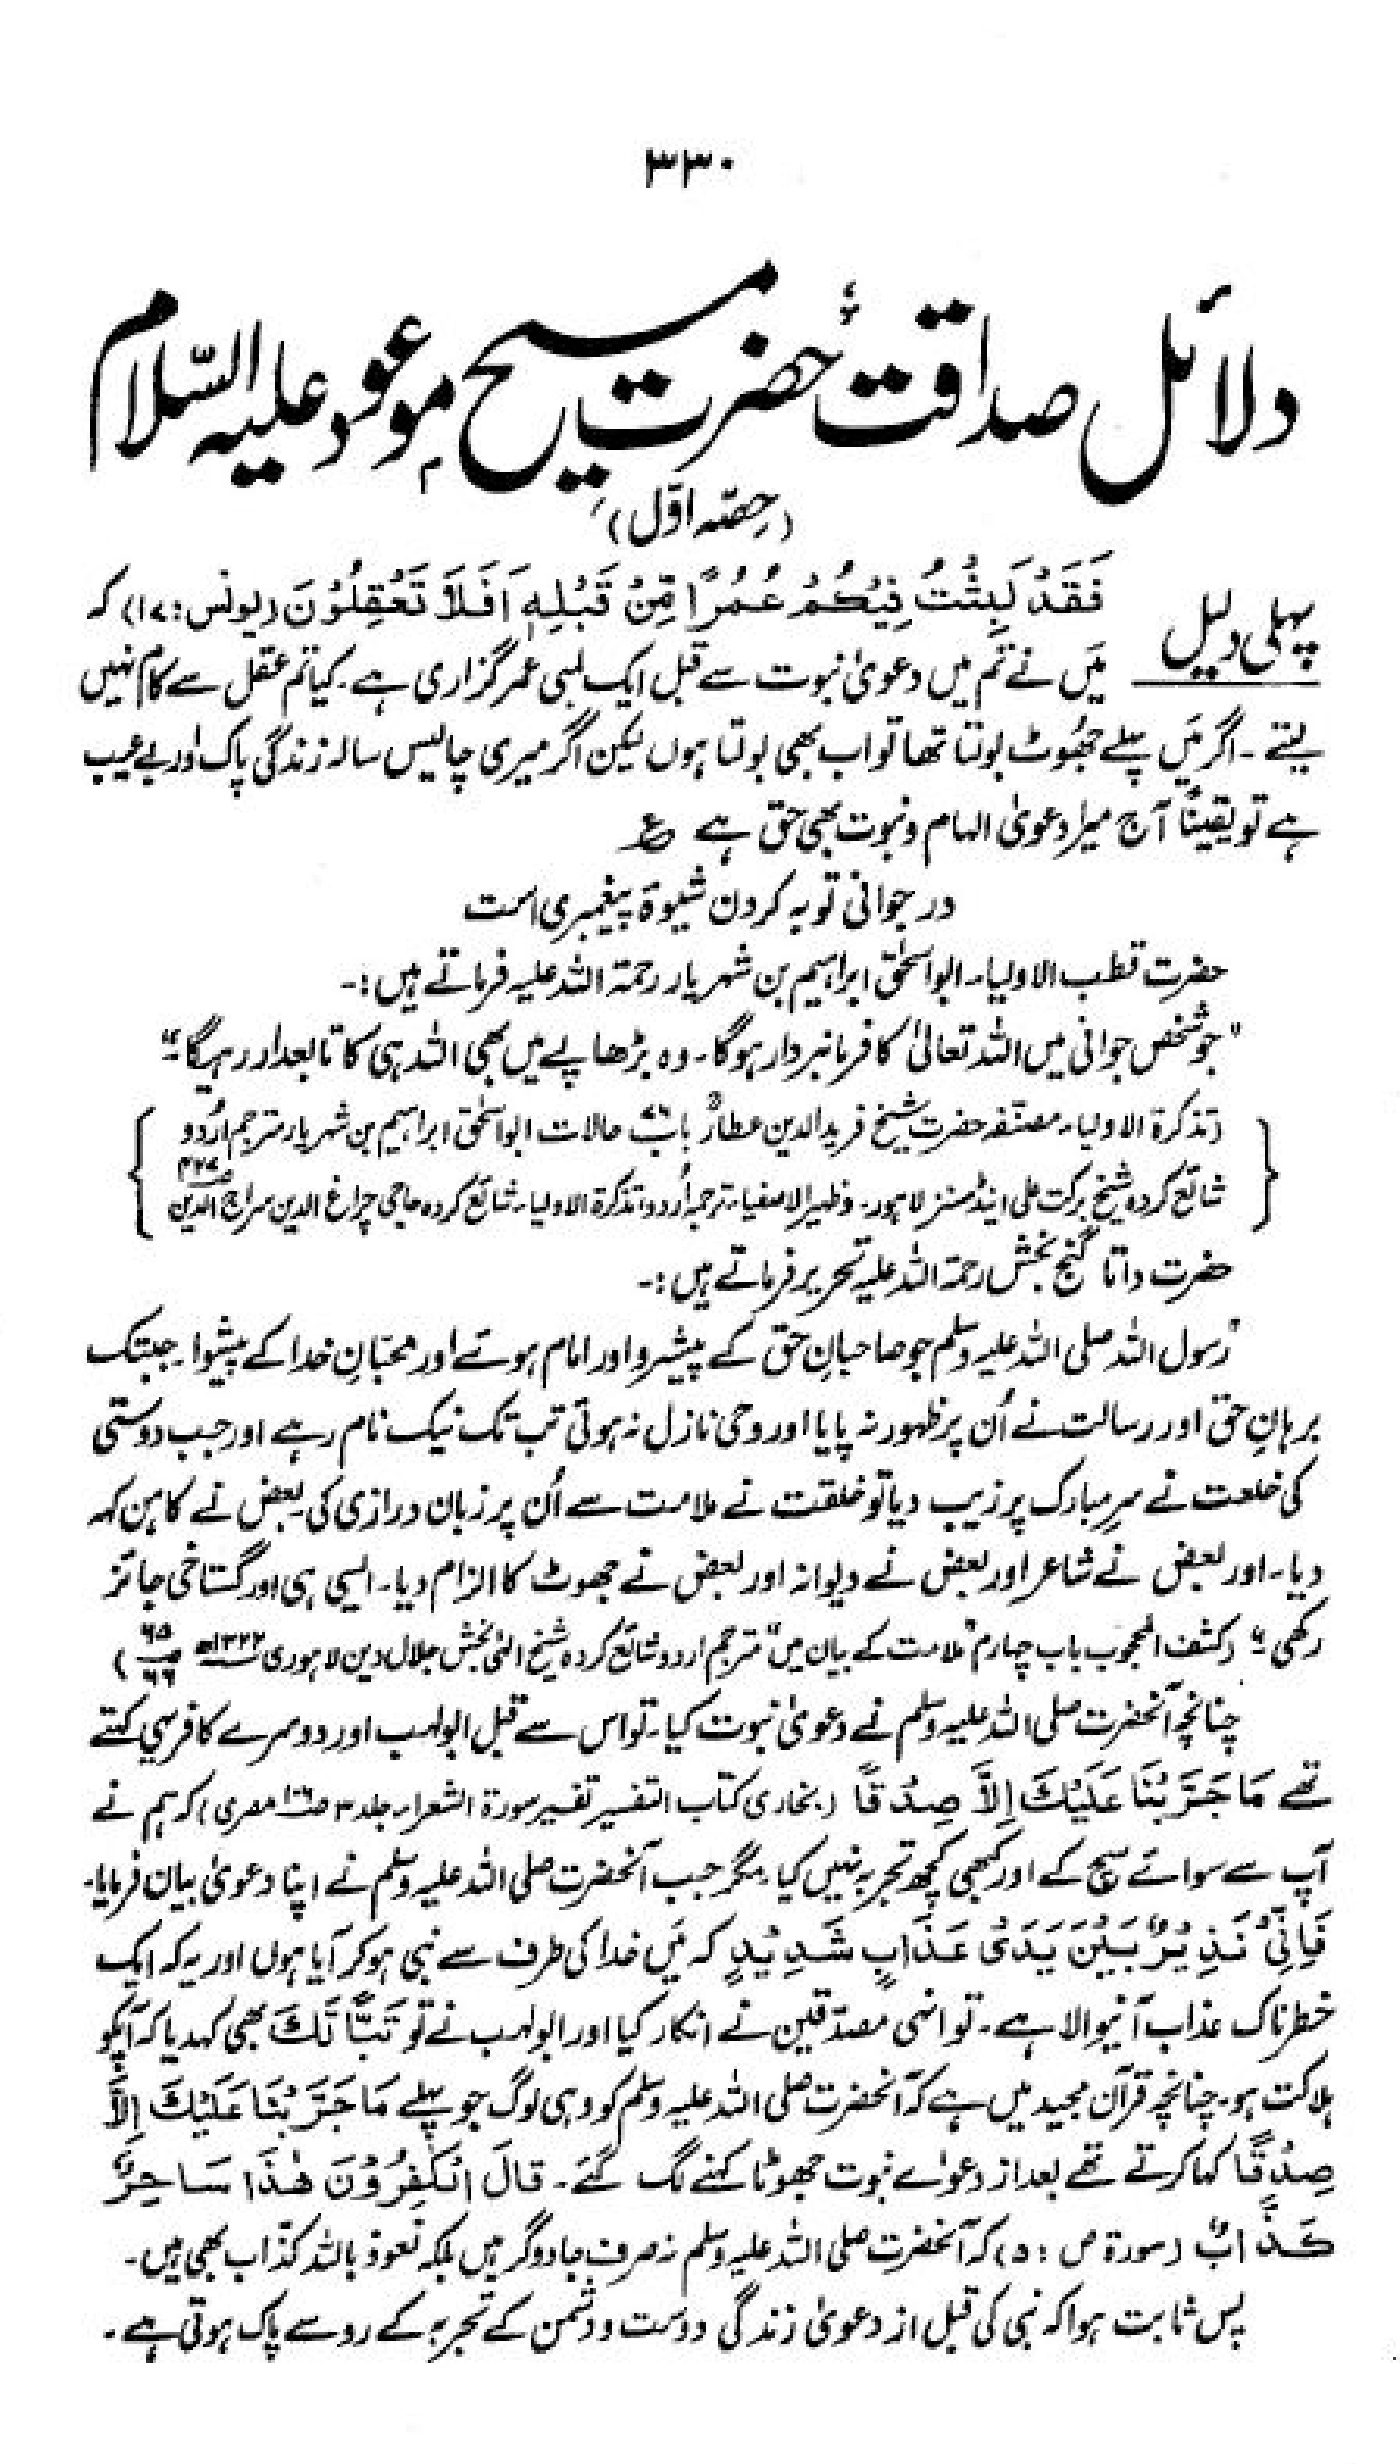 ۳۳۰
دلائل صداقتِ حضرت مسیح موعود علیہ السّلام
(حِصّہ اوّل)
پہلی دلیل
فَقَدْ لَبِثْتُ فِيْكُمْ عُمُرًا مِّنْ قَبْلِهٖ اَفَلَا تَعْقِلُوْنَ (یونس: ۱۷) کہ
مَیں نے تم میں دعویٰ نبوت سے قبل ایک لمبی عمر گزاری ہے۔ کیا تم عقل سے کام نہیں
لیتے ۔ اگر مَیں پہلے جھُوٹ بولتا تھا تو اب بھی بولتا ہوں لیکن اگر میری چالیس سالہ زندگی پاک اور بے عیب
ہے تو یقیناً آج میرا دعویٰ الہام و نبوت بھی حق ہے ع
در جوانی توبہ کردن شیوۂ پیغمبری است
حضرت قطب الاولیاء ابو اسحٰق ابراہیم بن شہریار رحمۃ اللہ علیہ فرماتے ہیں :۔
"جو شخص جوانی میں اللہ تعالیٰ کا فرمانبردار ہوگا۔ وہ بڑھاپے میں بھی اللہ ہی کا تابعدار رہیگا۔"
{ (تذکرۃ الاولیاء مصنّفہ حضرت شیخ فرید الدین عطارؒ باب حالات ابو اسحٰق ابراہیم بن شہریار مترجم اُردو
شائع کردہ شیخ برکت علی اینڈ سنز لاہور۔ و ظہیر الاصفیاء ترجمہ اُردو تذکرۃ الاولیاء شائع کردہ حاجی چراغ الدین سراج الدین }
حضرت داتا گنج بخش رحمۃ اللہ علیہ تحریر فرماتے ہیں :۔
"رسول اللہ صلی اللہ علیہ وسلم جو صاحبانِ حق کے پیشرو اور امام ہوئے اور محبّانِ خدا کے پیشوا۔ جبتک
برہانِ حق اور رسالت نے اُن پر ظہور نہ پایا اور وحی نازل نہ ہوئی تب تک نیک نام رہے اور جب دوستی
کی خلعت نے سرِ مبارک پر زیب دیا تو خلقت نے ملامت سے اُن پر زبان درازی کی۔ بعض نے کاہن کہہ
دیا۔ اور بعض نے شاعر اور بعض نے دیوانہ اور بعض نے جھوٹ کا الزام دیا۔ ایسی ہی اور گستاخی جائز
رکھی۔" (کشف المحجوب باب چہارم "ملامت کے بیان میں" مترجم اردو شائع کردہ شیخ الٰہی بخش جلال دین لاہوری ۱۳۲۲ھ ص ۶۵ ۶۶)
چنانچہ آنحضرت صلی اللہ علیہ وسلم نے دعویٰ نبوت کیا۔ تو اس سے قبل ابولہب اور دوسرے کافر یہی کہتے
تھے مَا جَرَّبْنَا عَلَيْكَ اِلَّا صِدْقًا (بخاری کتاب التفسیر تفسیر سورۃ الشعراء جلد ۳ مصری) کہ ہم نے
آپ سے سوائے سچ کے اور کبھی کچھ تجربہ نہیں کیا۔ مگر جب آنحضرت صلی اللہ علیہ وسلم نے اپنا دعویٰ بیان فرمایا۔
فَاِنِّيْ نَذِيْرٌ بَيْنَ يَدَيْ عَذَابٍ شَدِيْدٍ کہ مَیں خدا کی طرف سے نبی ہو کر آیا ہوں اور یہ کہ ایک
خطرناک عذاب آنیوالا ہے۔ تو انہی مصدّقین نے انکار کیا اور ابولہب نے تو تَبًّا لَّكَ بھی کہدیا کہ آپکو
ہلاکت ہو۔ چنانچہ قرآن مجید میں ہے کہ آنحضرت صلی اللہ علیہ وسلم کو وہی لوگ جو پہلے مَا جَرَّبْنَا عَلَيْكَ اِلَّا
صِدْقًا کہا کرتے تھے بعد از دعوٰے نبوت جھوٹا کہنے لگ گئے۔ قَالَ الْكٰفِرُوْنَ هٰذَا سَاحِرٌ
كَذَّابٌ (سورۃ ص : ۵) کہ آنحضرت صلی اللہ علیہ وسلم نہ صرف جادوگر ہیں بلکہ نعوذ باللہ کذّاب بھی ہیں۔
پس ثابت ہوا کہ نبی کی قبل از دعویٰ زندگی دوست و دشمن کے تجربہ کے رو سے پاک ہوتی ہے۔